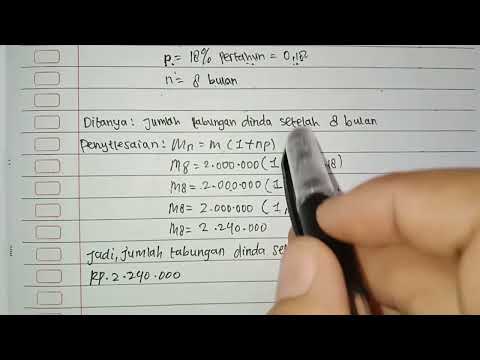 p = 18% pertahun = 0,18
n = 8 bulan
Ditanya: Jumlah tabungan dinda setelah 8 bulan
Penyelesaian: Mn = M (1+np)
M8 = 2.000.000 (1
M8 = 2.000.000 (1
M8 = 2.000.000 (1,
M8 = 2.240.000
Jadi, jumlah tabungan dinda
Rp. 2.240.000